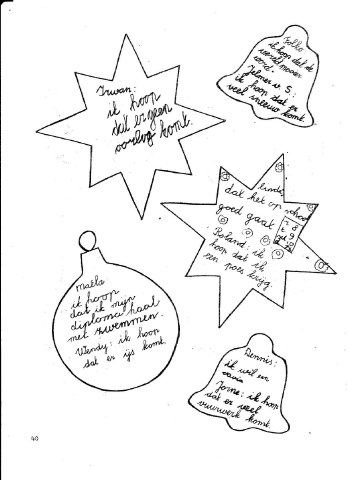 Irwan:
ik hoop
dat er geen
oorlog komt.
Folko
ik hoop dat de
wereld mooier
word.
Jelmer v S:
ik hoop dat er
veel sneeuw komt
linda:
dat het op school
goed gaat
Roland: ik
hoop dat ik
een poes krijg.
Maèla
ik hoop
dat ik mijn
diploma haal
met zwemmen.
Wendy: ik hoop
dat er ijs komt.
Dennis:
ik wil een
Jorne: ik hoop
dat er veel
vuurwerk komt.
40